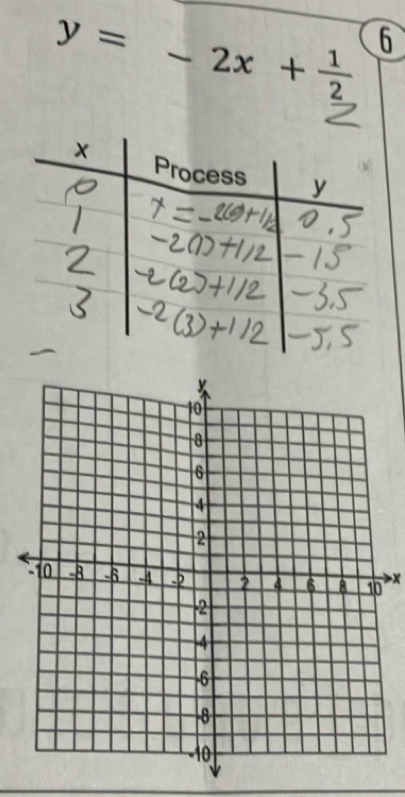 6
y = - 2x + 1/2
2
x Process y
0 y = -2(0)+1/2 0.5
1 -2(1)+1/2 -1.5
2 -2(2)+1/2 -3.5
3 -2(3)+1/2 -5.5
y
10
8
6
4
2
-10 -8 -6 -4 -2 2 4 6 8 10 x
-2
-4
-6
-8
-10